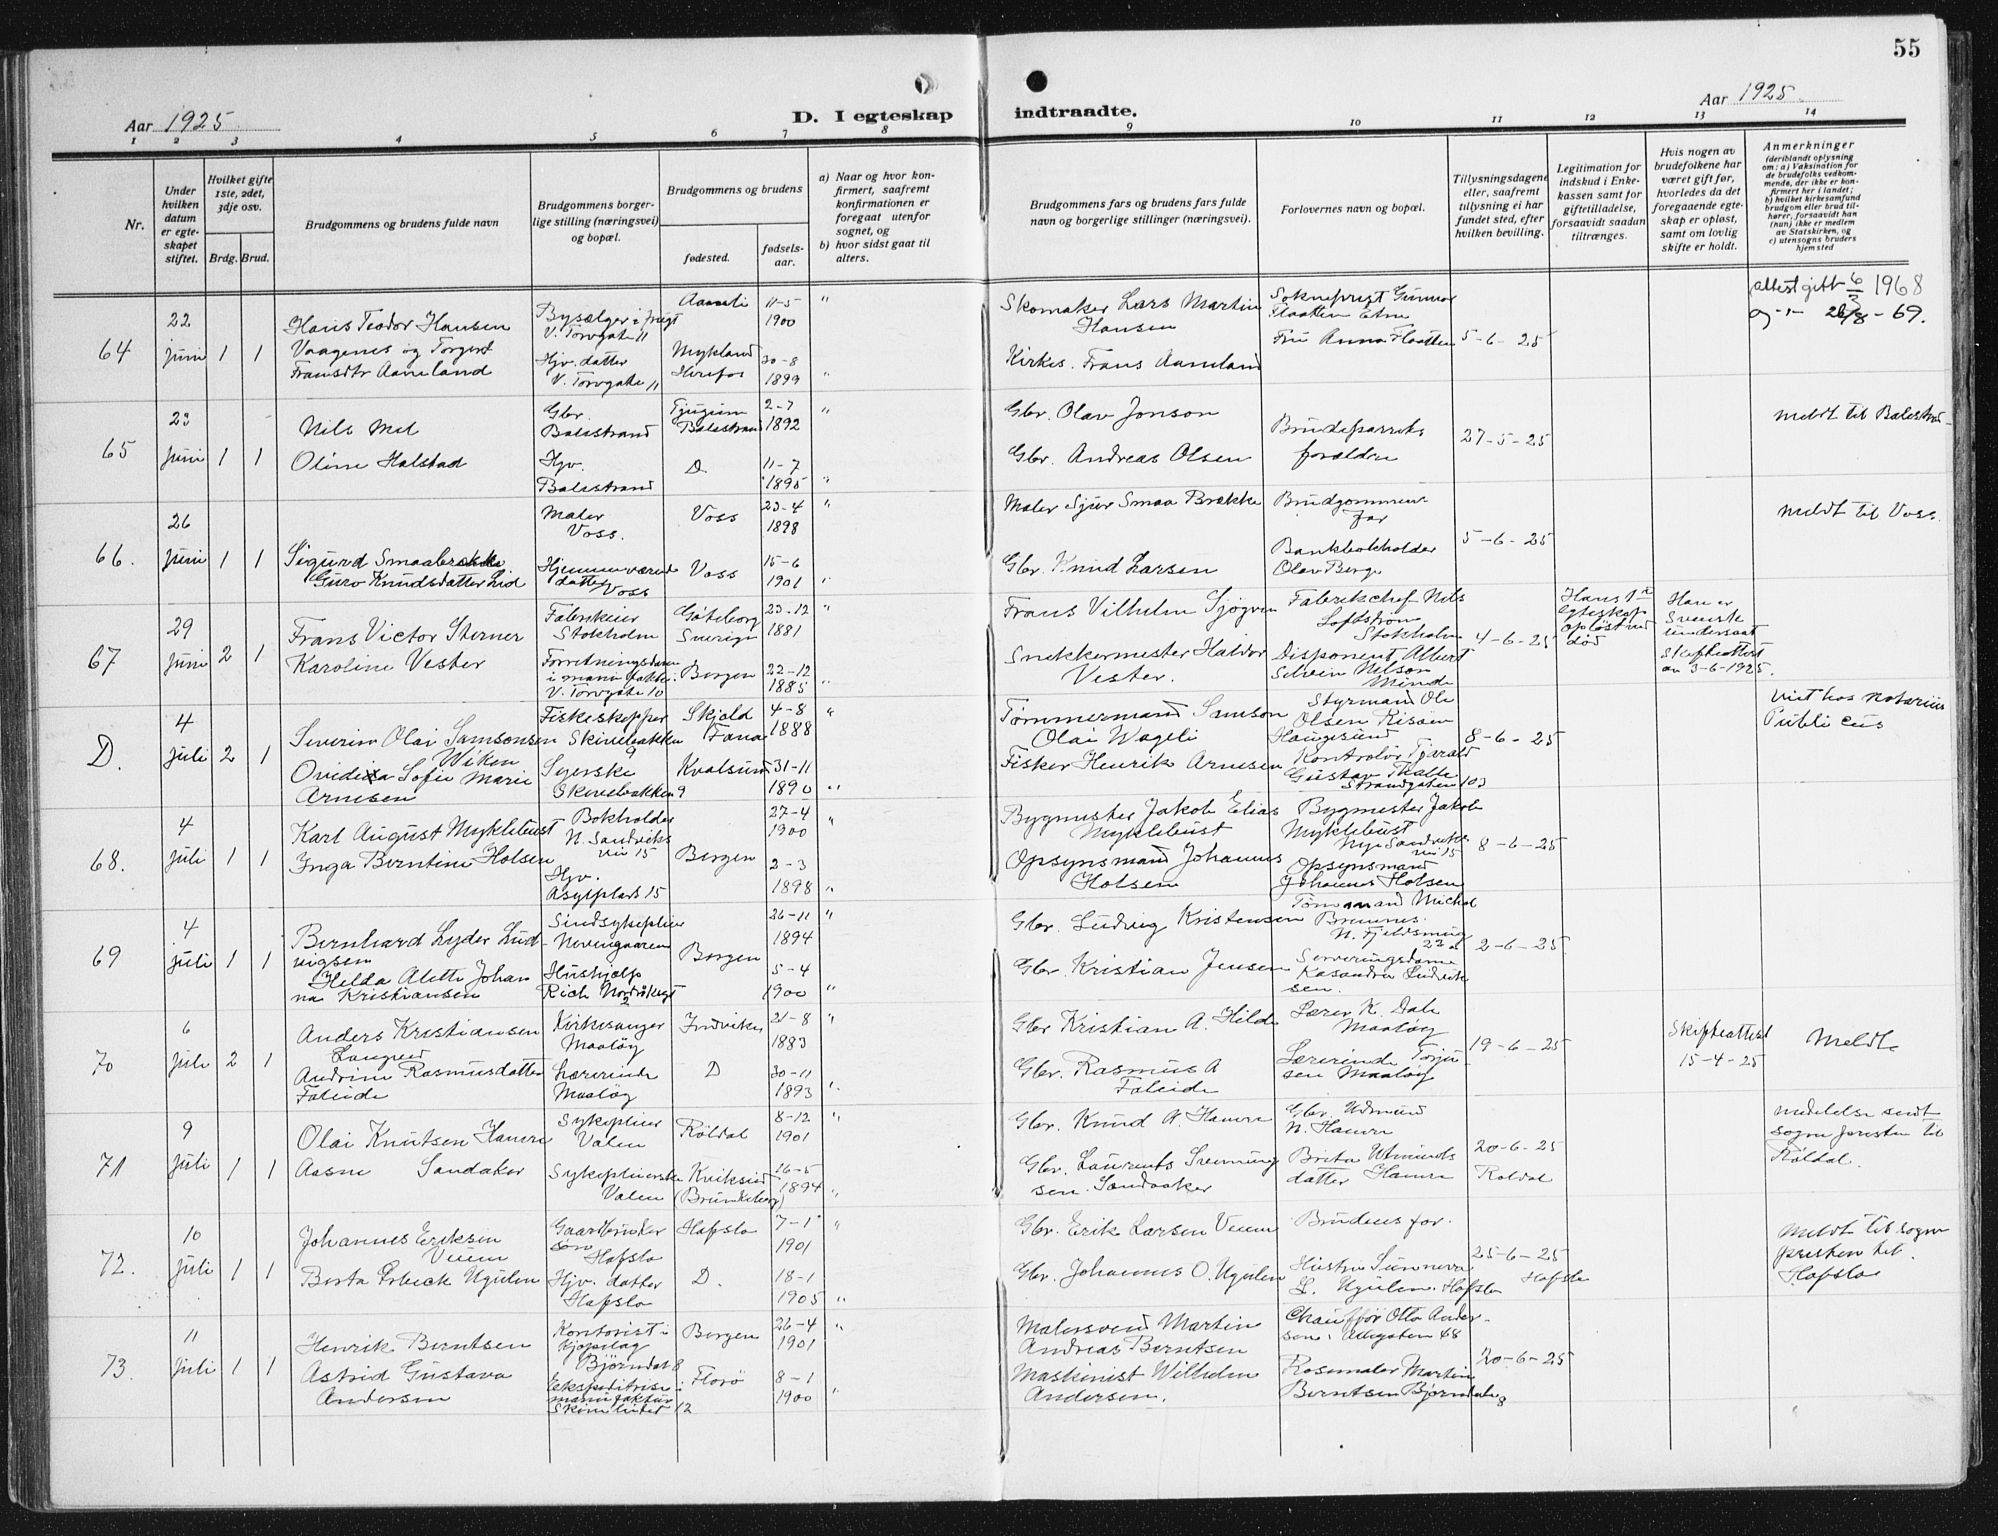 55
Aar 1925.
D. I egteskap indtraadte.
Aar 1925.
1 2 3 4 5 6 7 8 9 10 11 12 13 14
Nr.
Under hvilken datum er egteskapet stiftet.
Hvilket gifte 1ste, 2det, 3dje osv.
Brdg. Brud.
Brudgommens og brudens fulde navn
Brudgommens borgerlige stilling (næringsvei) og bopæl.
Brudgommens og brudens
fødested.
fødselsaar.
a) Naar og hvor konfirmert, saafremt konfirmationen er foregaat utenfor sognet, og
b) hvor sidst gaat til alters.
Brudgommens fars og brudens fars fulde navn og borgerlige stillinger (næringsvei).
Forlovernes navn og bopæl.
Tillysningsdagene eller, saafremt tillysning ei har fundet sted, efter hvilken bevilling.
Legitimation for indskud i Enkekassen samt for giftetilladelse, forsaavidt saadan tiltrænges.
Hvis nogen av brudefolkene har været gift før, hvorledes da det foregaaende egteskap er opløst, samt om lovlig skifte er holdt.
Anmerkninger
(deriblandt oplysning om: a) Vaksination for de brudefolks vedkommende, der ikke er konfirmert her i landet; b) hvilket kirkesamfund brudgom eller brud tilhører, forsaavidt han (hun) ikke er medlem av Statskirken, og c) utensogns bruders hjemsted
64 22 Juni 1 1
Hans Teodor Hansen
Vaagenes og Torgert
Fransdtr Aamland
Bysælger i frugt
V. Torvgate 11
Hjv. datter
V. Torvgate 11
Aamli 11-5 1900 "
Mykland Herefos 30-8 1899 "
Skomaker Lars Martin
Hansen
Kirkes. Frans Aamland
Sokneprest Gunnar
Flaatten Etne
Fru Anna Flaatten
5-6-25
attest gitt 6/2 1968
og -"- 26/8 - 69.
65 23 Juni 1 1
Nils Mel
Oline Halstad
Gbr.
Balestrand
Hjv.
Balestrand
Tjugum Balestrand 2-7 1892 "
D. 11-7 1895 "
Gbr. Olav Jonson
Gbr. Andreas Olsen
Brudeparrets
forældre
27-5-25
meldt til Balestrand
66. 26 Juni 1 1
Sigurd Smaabrekke
Guro Knudsdatter Lid
Maler
Voss.
Hjemmeværende
datter Voss
Voss 23-4 1898 "
Voss 15-6 1901 "
Maler Sjur Smaa Brække
Gbr. Knud Larsen
Brudgommens
far
Bankbokholder
Olav Berge
5-6-25
meldt til Voss.
67 29 Juni 2 1
Frans Victor Sterner
Karoline Vester
Fabrikeier
Stokholm
Forretningsdame
i manufaktur.
V. Torvgate 10
Gøteborg Sverige 23-12 1881 "
Bergen 22-12 1885 "
Frans Vilhelm Sjøgren
Snekkermester Haldor
Vester.
Fabrikchef Nils
Loftstrøm
Stokholm
Disponent Albert
Selvin Nilson
Minde
4-6-25
Hans 1ste
egteskap
opløst ved
død
Han er
Svensk
undersaat
Skifteattest
av 3-6-1925.
D. 4 Juli 2 1
Severin Olai Samsonsen
Wiken
Ovidia Sofie Marie
Arnesen
Fiskeskipper
Skivebakken 9
Syerske
Skivebakken 9
Skjold Fana 4-8 1888 "
Kvalsund 31-11 1890 "
Tømmermand Samson
Olai Wageli
Fisker Henrik Arnesen
Styrmand Ole
Olsen Risøen
Haugesund
Kontrolør Tjerald
Gustav Thalle
Strandgaten 103
8-6-25
Viet hos Notarius
Publicus
68. 4 Juli 1 1
Karl August Myklebust
Inga Berntine Holsen
Bokholder
N. Sandviks
vei 15
Hjv.
Asylplads 15
Bergen
27-4 1900 "
2-3 1898 "
Bygmester Jakob Elias
Myklebust
Opsynsmand Johannes
Holsen
Bygmester Jakob
Myklebust
Nye Sandviks
vei 15
Opsynsmand
Johannes Holsen
8-6-25
69 4 Juli 1 1
Bernhard Lyder Lud-
vigsen
Helda Alette Johan
na Kristiansen
Sindsykepleier
Nevengaarden
Hushjælp
Rich Nordraksgt 2
Bergen
26-11 1894 "
5-4 1900 "
Gbr. Ludvig Kristensen
Gbr. Kristian Jensen
Tømmermand Michal
Bremnes.
N. Fjeldsmug
22a
Serveringsdame
Kasandra Ludvik
sen.
2-6-25
70 6 Juli 2 1
Anders Kristiansen
Langeed
Andrine Rasmusdatter
Faleide
Kirkesanger
Maaløy
Lærerinde
Maaløy
Indviken 21-8 1883 "
D 30-11 1893 "
Gbr Kristian A. Hilde
Gbr. Rasmus A
Faleide
Lærer K. Dale
Maaløy
Lærerinde Torju
sen Maaløy
19-6-25
Skifteattest
15-4-25
Meldt
71 9 Juli 1 1
Olai Knutsen Hamre
Aasne Sandaker
Sykepleier
Valen
Sykepleierske
Valen
Røldal 8-12 1901 "
Kviteseid (Brunkeberg) 16-5 1894 "
Gbr. Knud A. Hamre
Gbr. Laurents Svennung
sen. Sandaaker
Gbr. Udmund
N. Hamre
Brita Utmunds
datter Hamre
20-6-25
Røldal
meddelelse sendt
sognepresten til
Røldal.
72. 10 Juli 1 1
Johannes Eriksen
Veum
Berta Orbeck Ugulen
Gaardbruker
søn
Hafslo
Hjv. datter
Hafslo
Hafslo 7-1 1901 "
D. 18-1 1905 "
Gbr. Erik Larsen Veum
Gbr. Johannes O. Ugulen
Brudens far.
Hustru Sunneva
L. Ugulen. Hafslo
25-6-25
Hafslo
meldt til sogne
presten til.
Hafslo
73. 11 Juli 1 1
Henrik Berntsen
Astrid Gustava
Andersen
Kontorist i
Kjøpslag
Bjørndal 8
Ekspeditrise i
manufaktur
Skivebakken 12
Bergen 26-4 1901 "
Florø 8-1 1900 "
Malersvend Martin
Andreas Berntsen
Maskinist Wilhelm
Andersen.
Chauffør Otto Ander-
sen, Allegaten 48
Rosemaler Martin
Berntsen Bjørndal 8
20-6-25